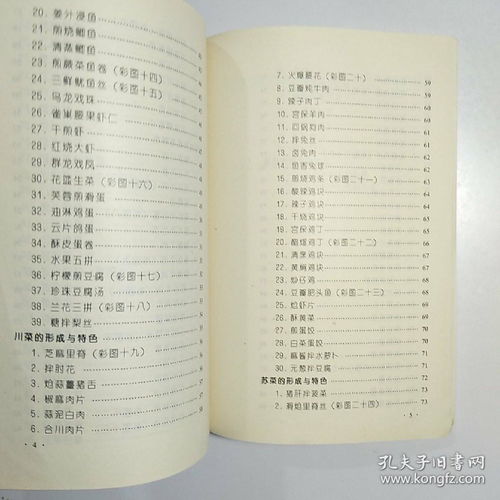 20. 姜外浸鱼
21. 煎烧鲫鱼
22. 清蒸鲫鱼
23. 煎蕨菜鱼卷（彩图十四）
24. 三鲜鱿鱼丝（彩图十五）
25. 乌龙戏珠
26. 雀巢腰果虾仁
27. 干煎虾
28. 红烧大虾
29. 群龙戏凤
30. 花篮生菜（彩图十六）
31. 芙蓉煎滑蛋
32. 油淋鸡蛋
33. 云片鸽蛋
34. 酥皮蛋卷
35. 水果五拼
36. 柠檬煎豆腐（彩图十七）
37. 珍珠豆腐汤
38. 兰花三拼（彩图十八）
39. 糖拌梨丝
川菜的形成与特色
1. 芝麻里脊（彩图十九）
2. 拌肘花
3. 烩蒜薹猪舌
4. 椒麻肉片
5. 蒜泥白肉
6. 合川肉片
· 4 ·
7. 火爆腰花（彩图二十） 59
8. 豆瓣炖牛肉 59
9. 辣子肉丁 60
10. 宫保羊肉 60
11. 回锅狗肉 61
12. 拌兔丝 62
13. 卤兔肉 62
14. 鱼香兔球 62
15. 煎烧鸡条（彩图二十一） 63
16. 酸辣鸡块 63
17. 辣子鸡块 64
18. 干烧鸡块 64
19. 宫保鸡丁 65
20. 醋熘鸡丁（彩图二十二） 66
21. 清蒸鸡块 66
22. 黄焖鸡块 67
23. 炒仔鸡 68
24. 豆瓣肥头鱼（彩图二十三） 68
25. 烩虾片 69
26. 酥黄菜 69
27. 煎蛋饺 70
28. 白菜蛋饺 70
29. 麻酱拌水萝卜 71
30. 元葱拌豆腐 71
苏菜的形成与特色 72
1. 猪肝拌菠菜 73
2. 滑熘里脊丝（彩图二十四） 73
· 5 ·
孔夫子旧书网
www.kongfz.com